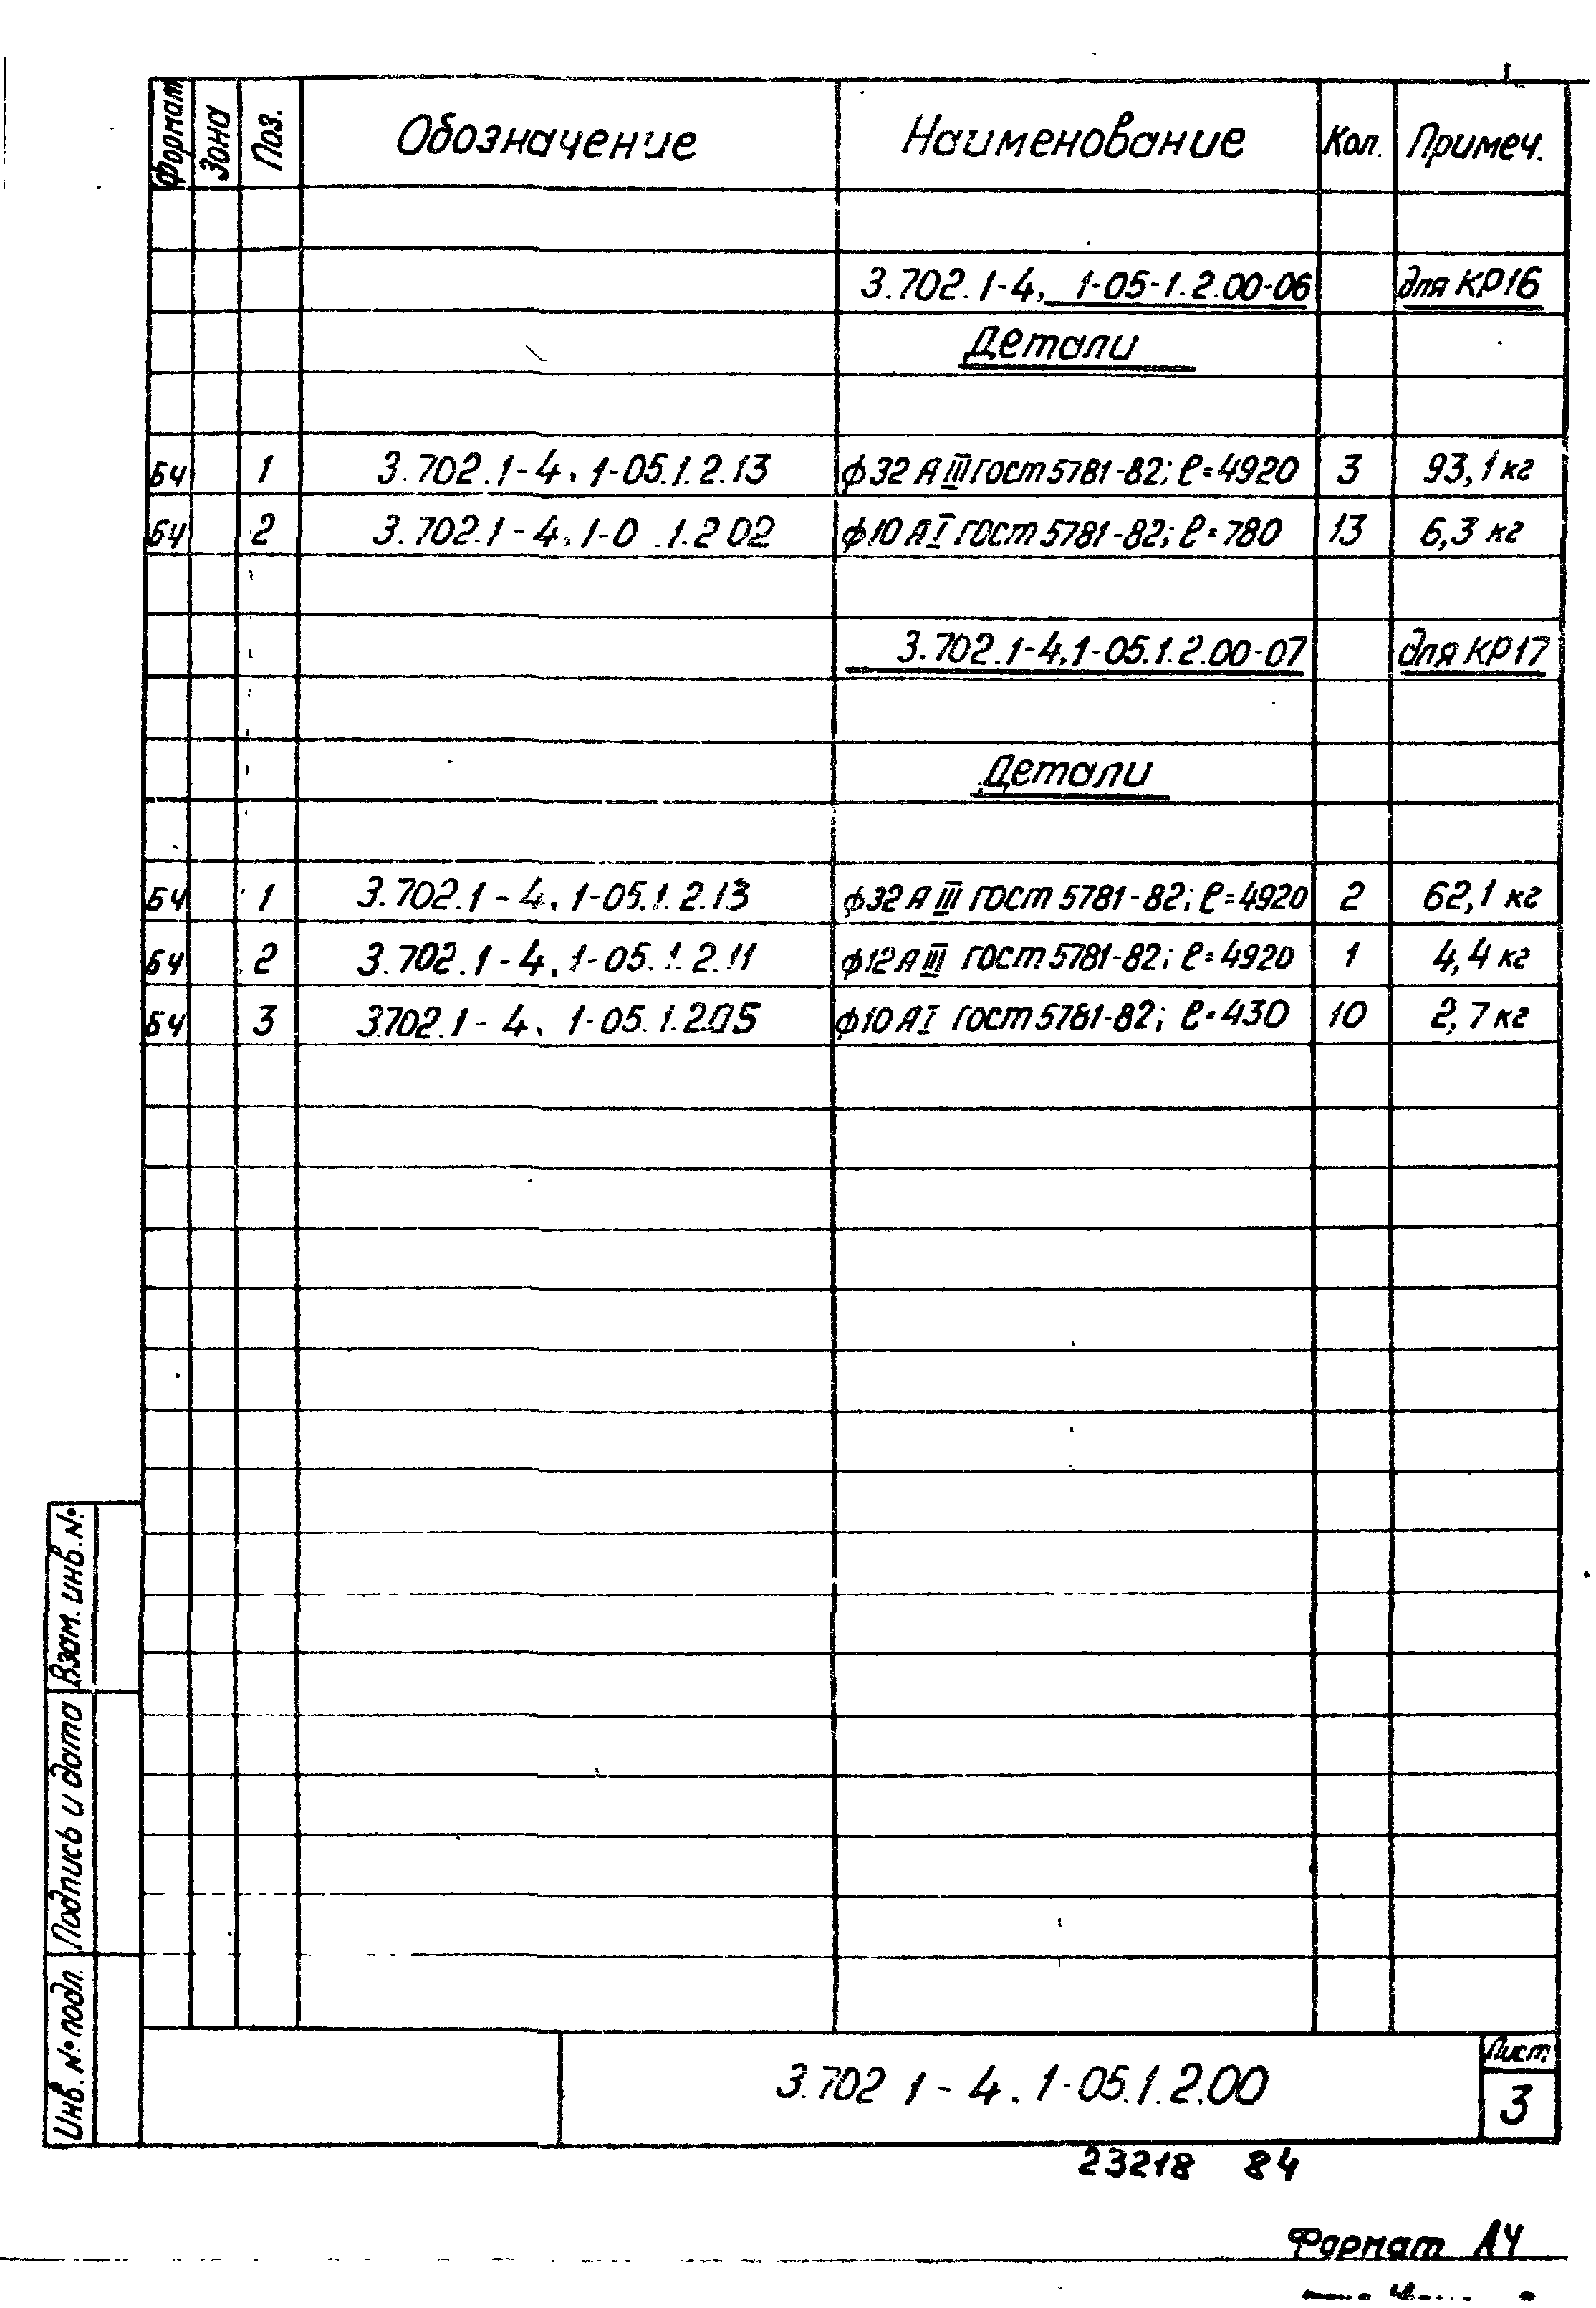 Формат Зона Поз. Обозначение Наименование Кол. Примеч.
3.702.1-4. 1-05-1.2.00-06 для КР16
Детали
БЧ 1 3.702.1-4.1-05.1.2.13 ф32 АIII ГОСТ 5781-82; ℓ=4920 3 93,1 кг
БЧ 2 3.702.1-4.1-0 .1.2 02 ф10 АI ГОСТ 5781-82; ℓ=780 13 6,3 кг
3.702.1-4.1-05.1.2.00-07 для КР17
Детали
БЧ 1 3.702.1-4. 1-05.1.2.13 ф32 АIII ГОСТ 5781-82; ℓ=4920 2 62,1 кг
БЧ 2 3.702.1-4. 1-05.1.2.11 ф12 АIII ГОСТ 5781-82; ℓ=4920 1 4,4 кг
БЧ 3 3.702.1-4. 1-05.1.2.05 ф10 АI ГОСТ 5781-82; ℓ=430 10 2,7 кг
Взам. инв. №
Подпись и дата
Инв. № подл.
3.702 1-4. 1-05.1.2.00
Лист
3
23218 84
Формат А4